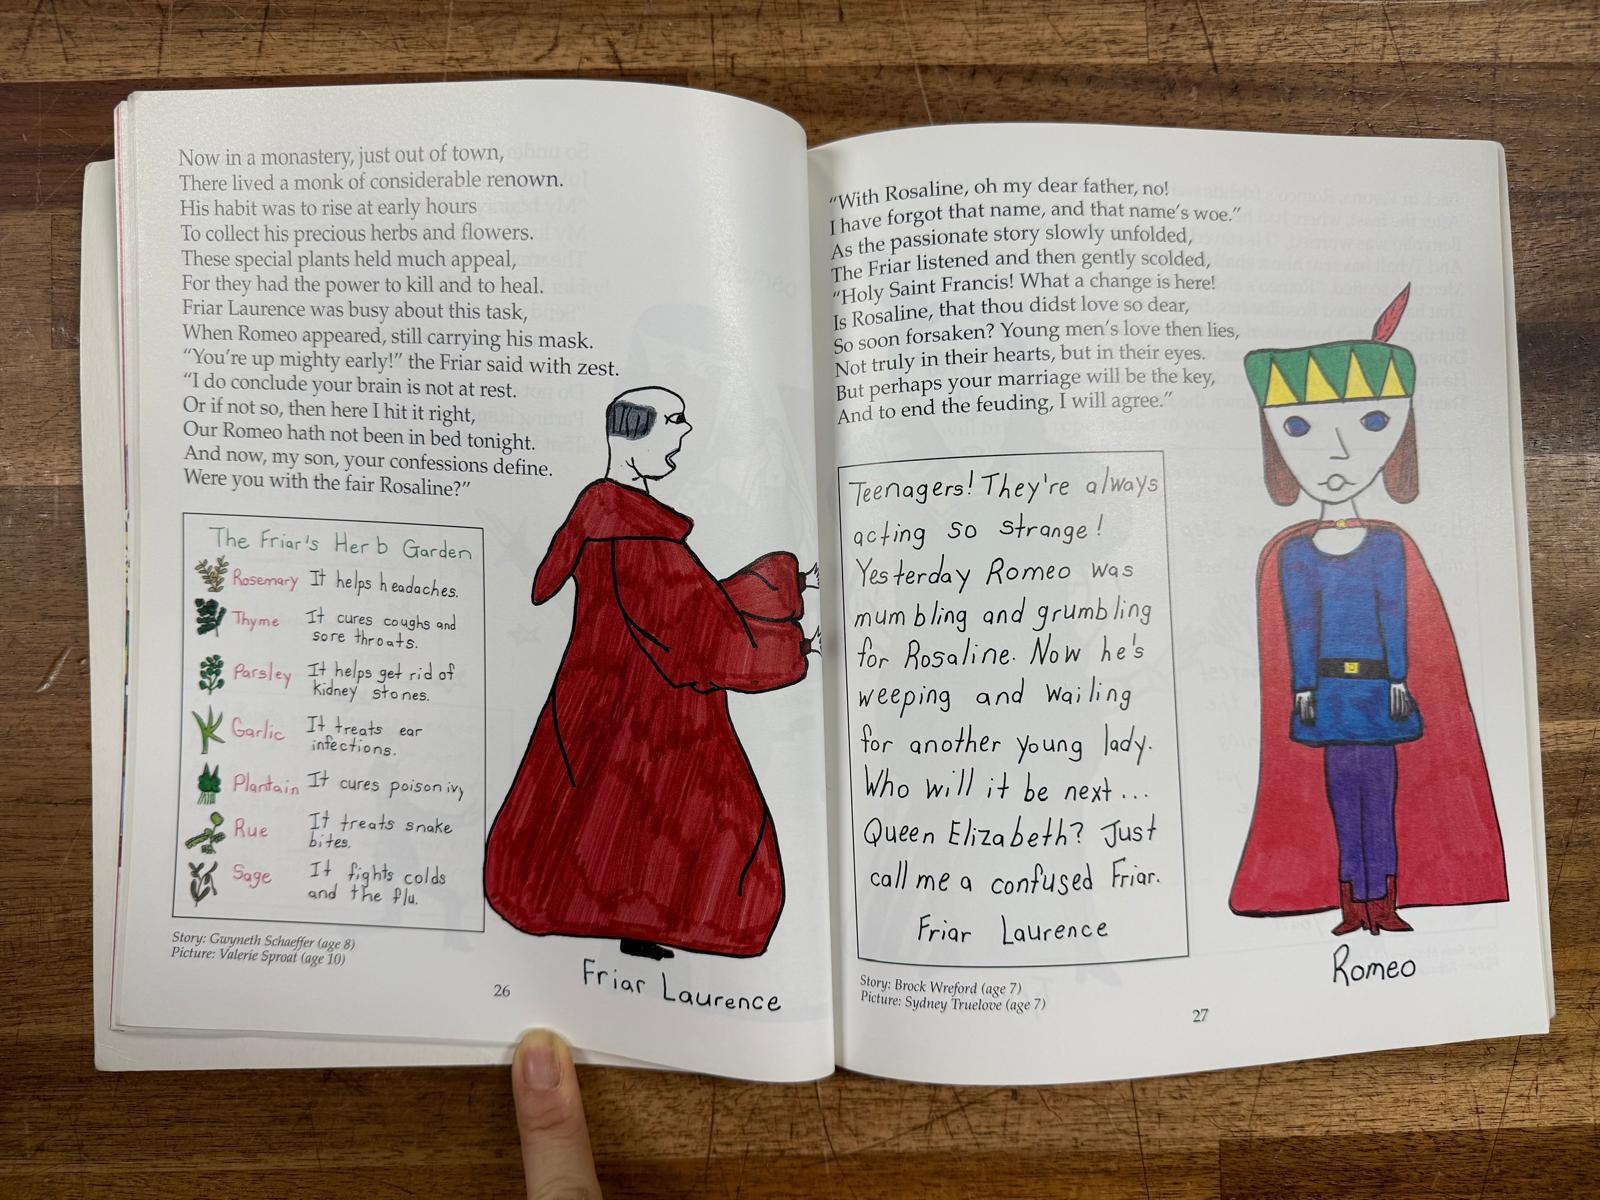 Now in a monastery, just out of town,
There lived a monk of considerable renown.
His habit was to rise at early hours
To collect his precious herbs and flowers.
These special plants held much appeal,
For they had the power to kill and to heal.
Friar Laurence was busy about this task,
When Romeo appeared, still carrying his mask.
“You’re up mighty early!” the Friar said with zest.
“I do conclude your brain is not at rest.
Or if not so, then here I hit it right,
Our Romeo hath not been in bed tonight.
And now, my son, your confessions define.
Were you with the fair Rosaline?”
The Friar's Herb Garden
Rosemary It helps headaches.
Thyme It cures coughs and
sore throats.
Parsley It helps get rid of
kidney stones.
Garlic It treats ear
infections.
Plantain It cures poison ivy
Rue It treats snake
bites.
Sage It fights colds
and the flu.
Story: Gwyneth Schaeffer (age 8)
Picture: Valerie Sproat (age 10)
Friar Laurence
26
“With Rosaline, oh my dear father, no!
I have forgot that name, and that name’s woe.”
As the passionate story slowly unfolded,
The Friar listened and then gently scolded,
“Holy Saint Francis! What a change is here!
Is Rosaline, that thou didst love so dear,
So soon forsaken? Young men’s love then lies,
Not truly in their hearts, but in their eyes.
But perhaps your marriage will be the key,
And to end the feuding, I will agree.”
Teenagers! They're always
acting so strange!
Yesterday Romeo was
mumbling and grumbling
for Rosaline. Now he's
weeping and wailing
for another young lady.
Who will it be next...
Queen Elizabeth? Just
call me a confused Friar.
Friar Laurence
Story: Brock Wreford (age 7)
Picture: Sydney Truelove (age 7)
Romeo
27